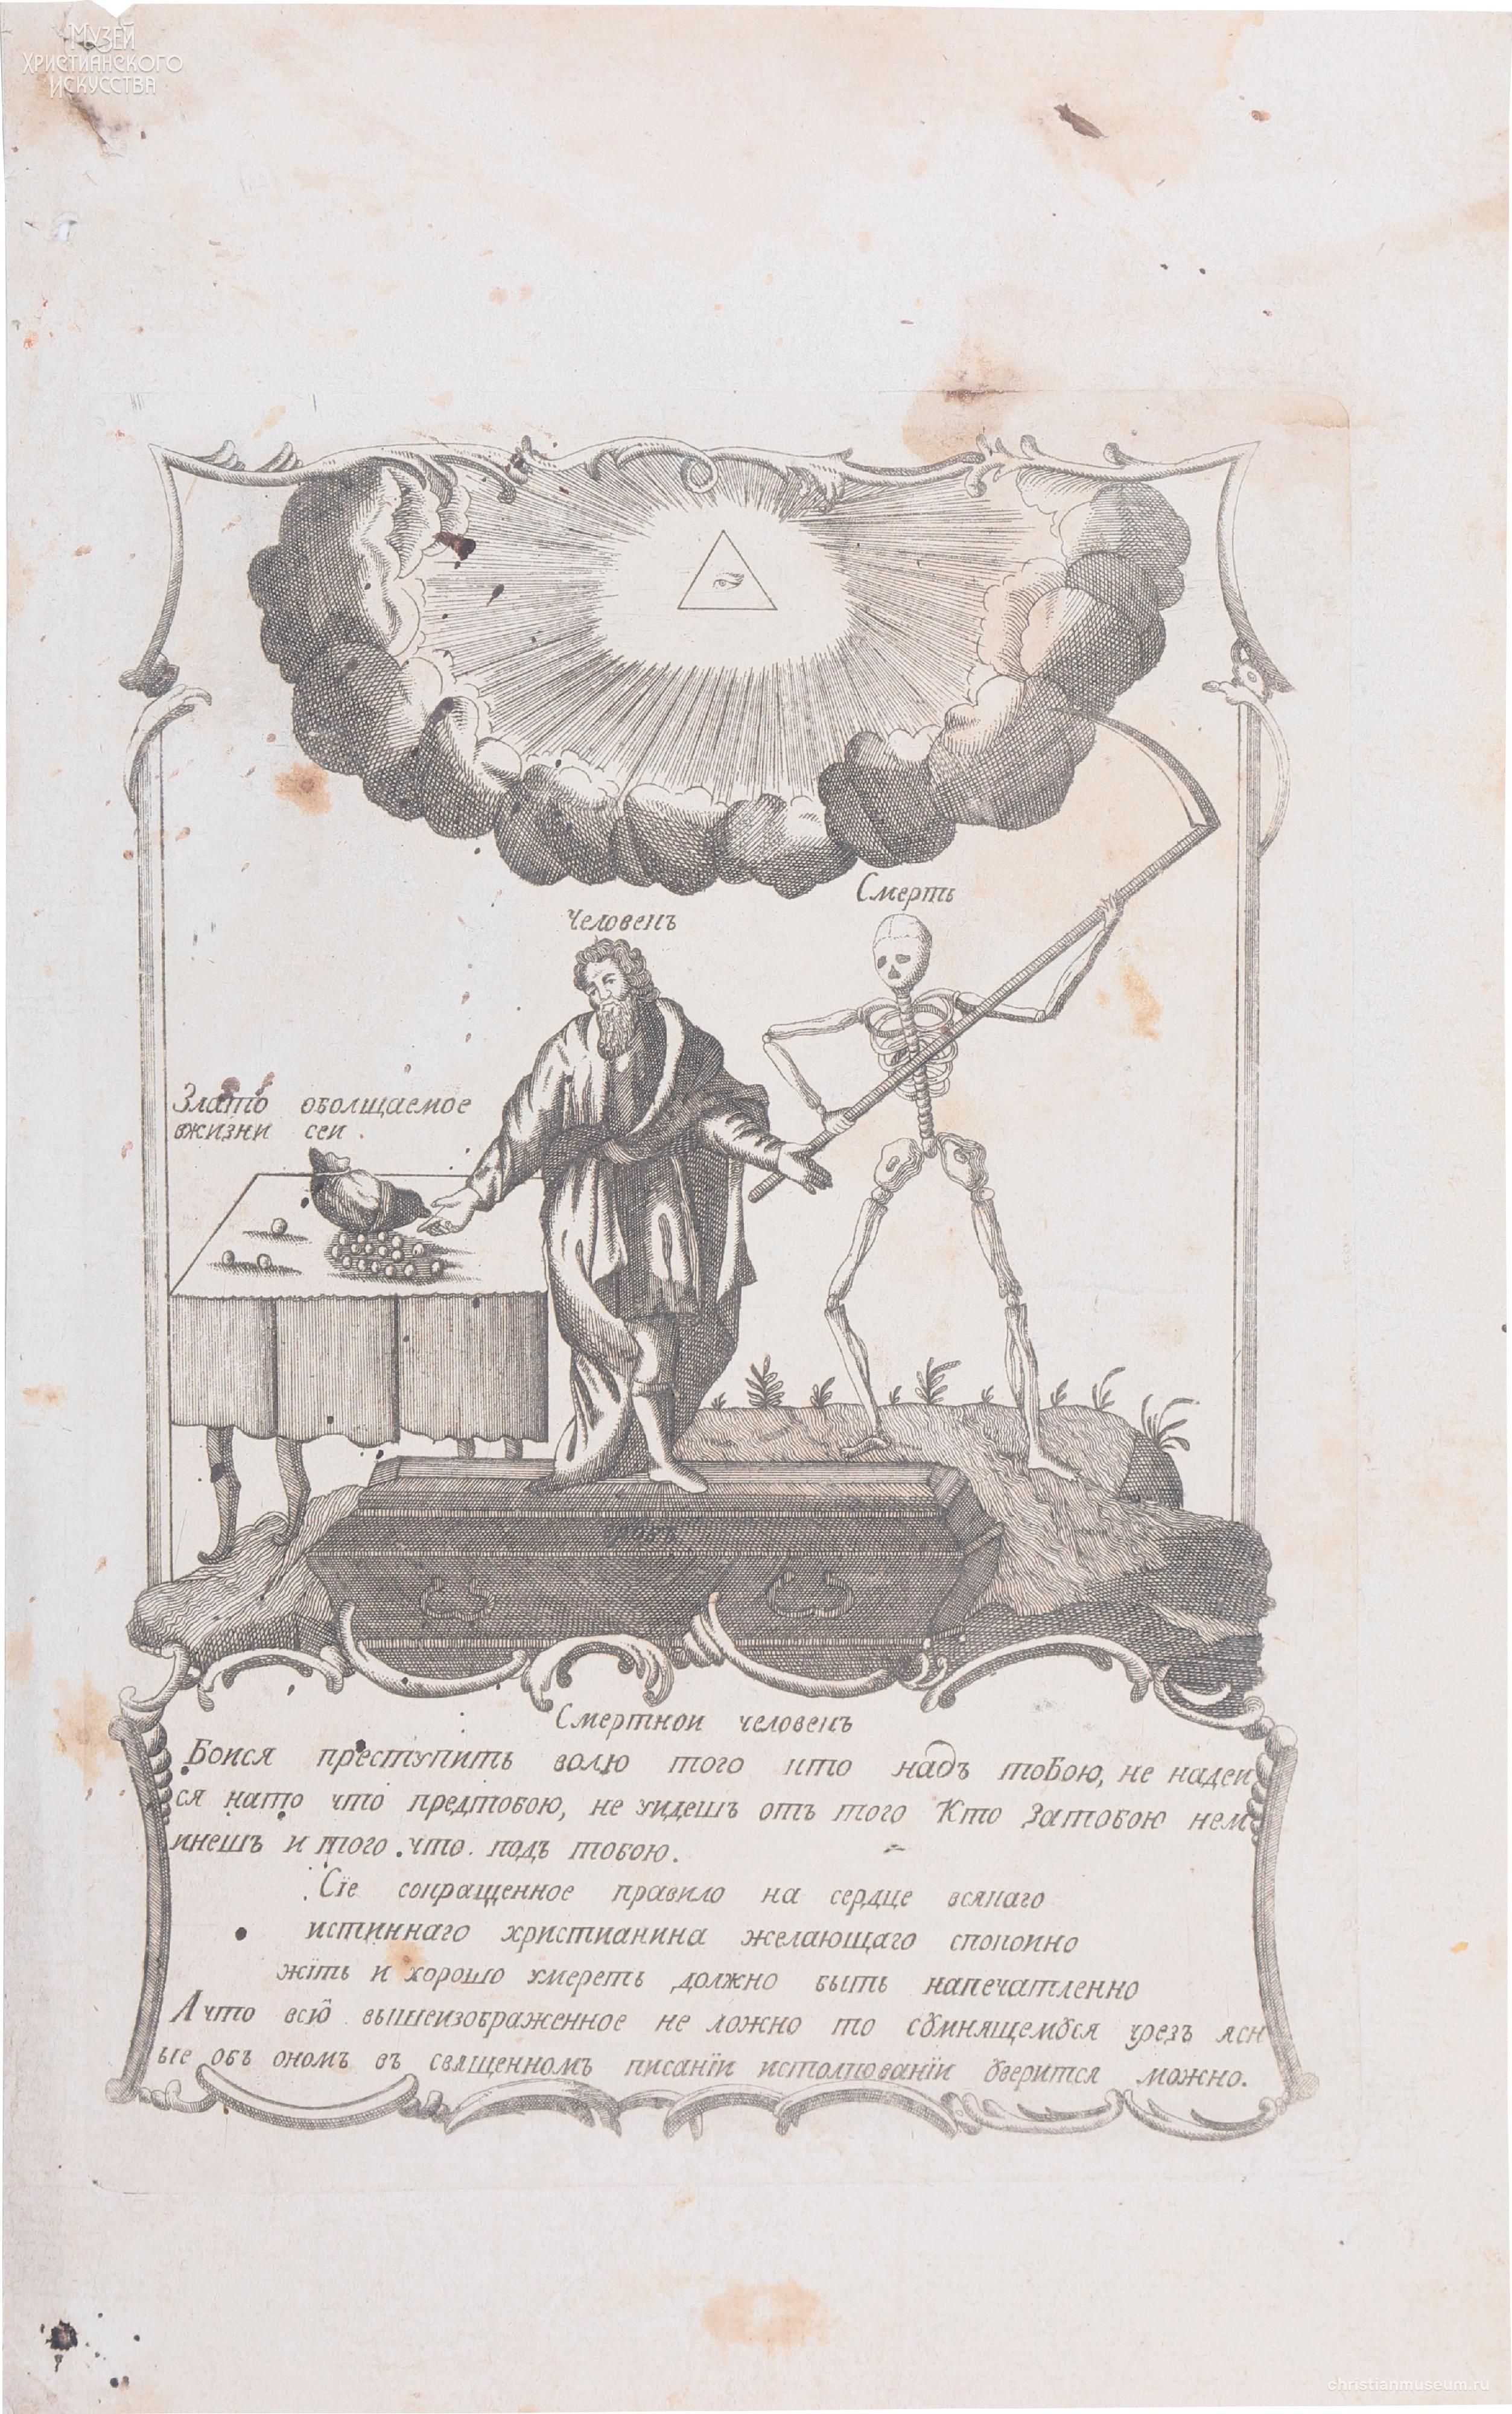 Музей
христианского
искусства
Смерть
Человекъ
Злато оболщаемое
вжизни сеи.
Смертнои человекъ
Боися преступить волю того кто надъ тобою, не надеи
ся нато что предтобою, не уидешъ отъ того Кто Затобою нем
инешъ и того что подъ тобою.
Сїе сокращенное правило на сердце всякаго
истиннаго христианина желающаго спокоино
жїть и хорошо умереть должно быть напечатленно
А что всю вышеизображенное не ложно то сȣмнящемȣся чрезъ ясн
ые объ ономъ въ священномъ писанїи истолкованїи ȣверится можно.
christianmuseum.ru